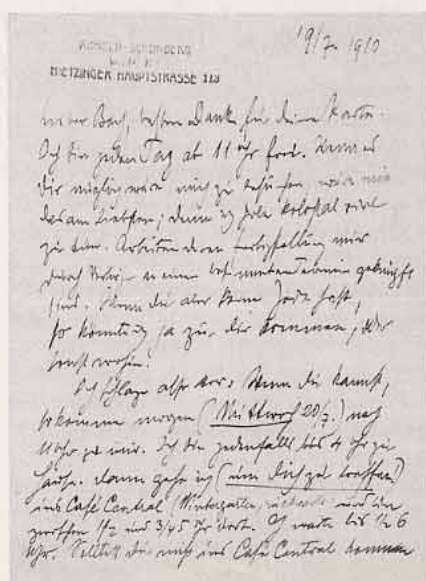 ARNOLD SCHÖNBERG
HIETZINGER HAUPTSTRASSE 113
19/7. 1910
Lieber Bach, besten Dank für deine Karte.
Ich bin jeden Tag ab 11 Uhr frei. Wenn es
dir möglich wäre mich zu besuchen, wäre mir
das am liebsten; denn ich habe kolossal viel
zu tun. Arbeiten deren Fertigstellung mir
durch an einen bestimmten Termin geknüpft
sind. Wenn du aber keine Zeit hast,
so komme ich ja zu dir kommen, oder
sonst wohin!
Ich schlage also vor: Wenn du kannst,
so komme morgen (Mittwoch 20/7.) nach
11 Uhr zu mir. Ich bin jedenfalls bis 4 Uhr zu
Hause. Dann gehe ich (um dich zu treffen!)
ins Café Central (Wintergarten, und bin
zwischen 1/2 und 3/4 5 Uhr dort. Ich warte bis 1/2 6
Uhr. Solltest du nicht ins Café Central kommen